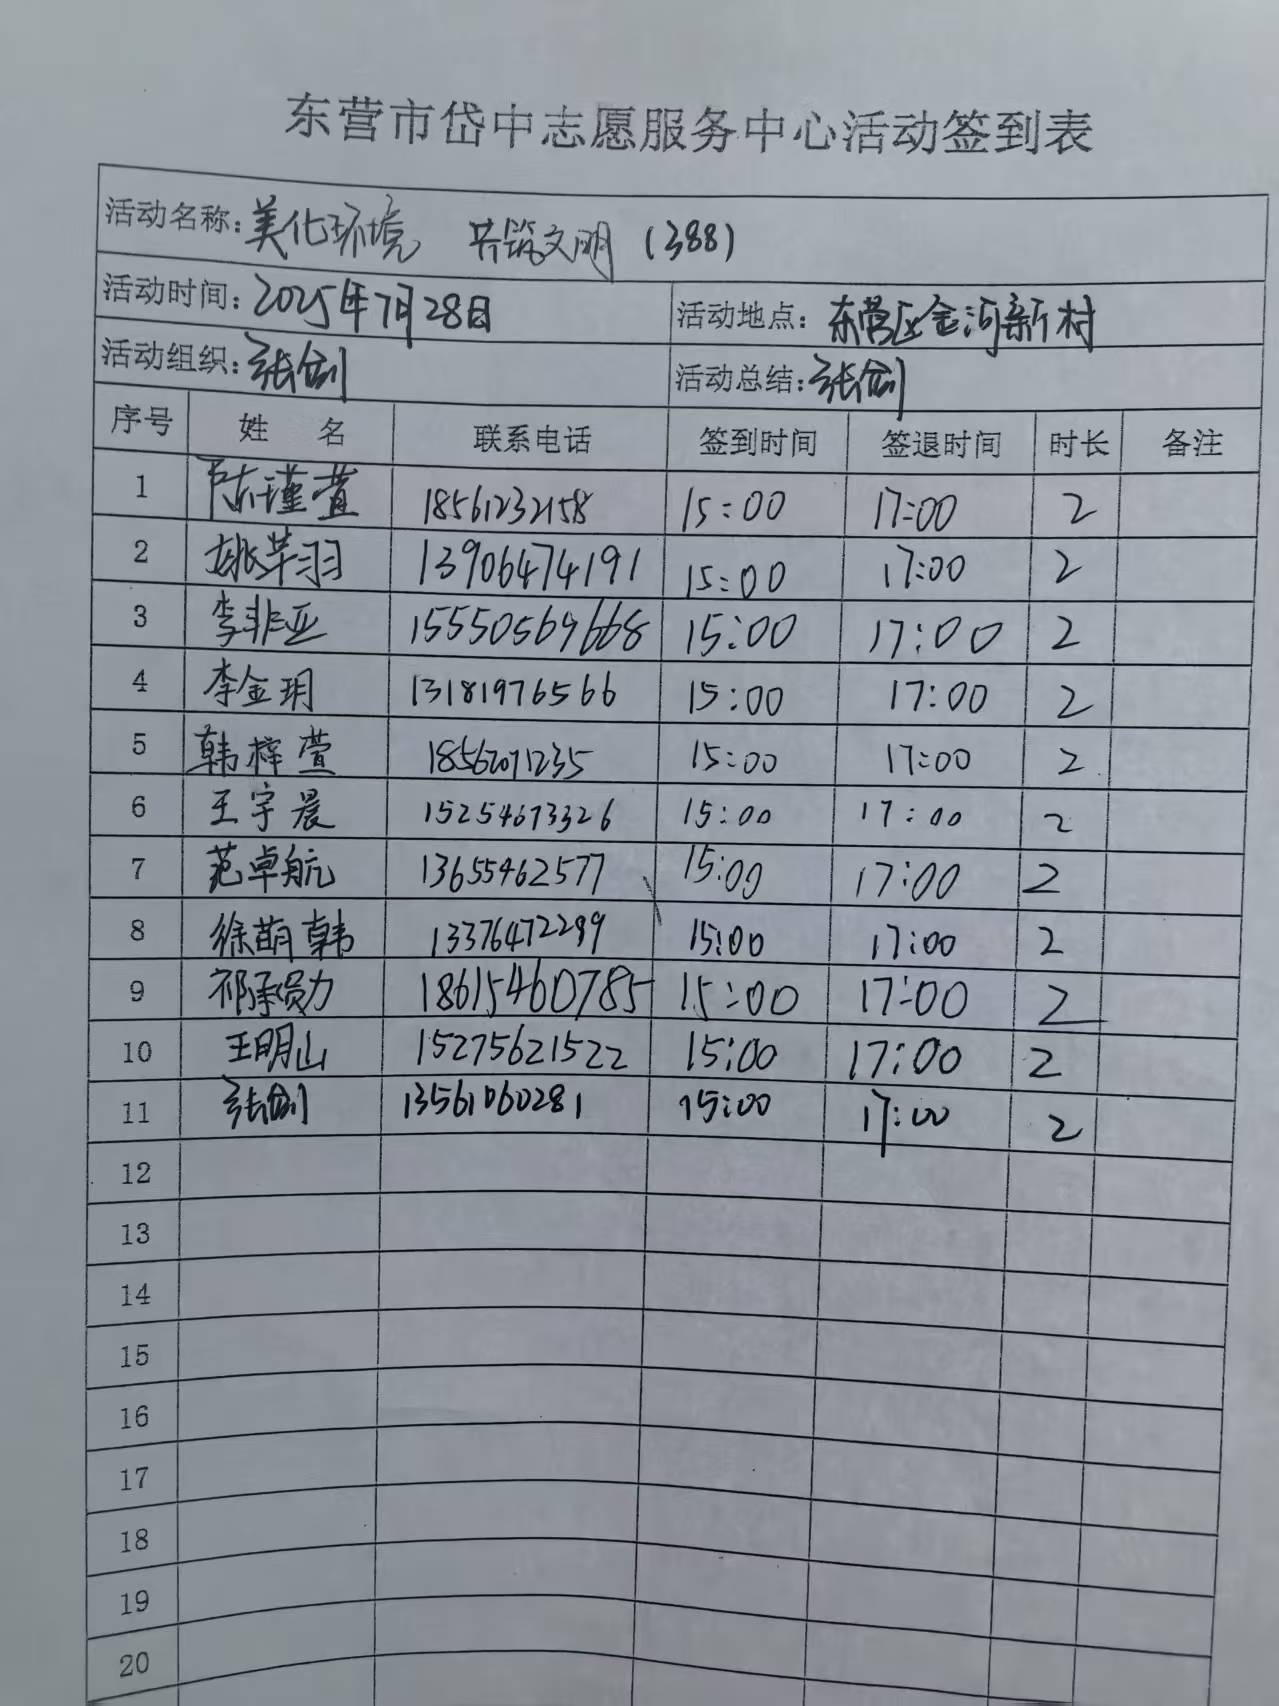 东营市岱中志愿服务中心活动签到表
活动名称: 美化环境 共筑文明 (388)
活动时间: 2025年7月28日 活动地点: 东营区金河新村
活动组织: 张剑 活动总结: 张剑
序号 姓 名 联系电话 签到时间 签退时间 时长 备注
1 陈瑾萱 18561232158 15:00 17:00 2
2 姚苹羽 13906474191 15:00 17:00 2
3 李非亚 15550569668 15:00 17:00 2
4 李金玥 13181976566 15:00 17:00 2
5 韩梓萱 18562071235 15:00 17:00 2
6 王宇晨 15254673326 15:00 17:00 2
7 范卓航 13655462577 15:00 17:00 2
8 徐萌韩 13376472299 15:00 17:00 2
9 祁承勋 18615460785 15:00 17:00 2
10 王明山 15275621522 15:00 17:00 2
11 张剑 13561060281 15:00 17:00 2
12
13
14
15
16
17
18
19
20